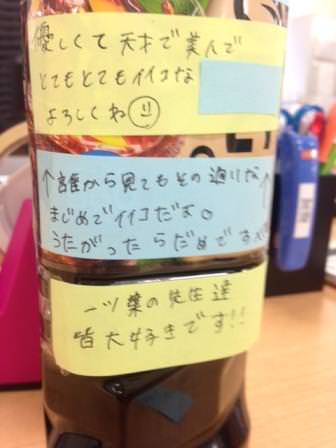 優しくて天才で美人で
とてもとてもイイコな
よろしくね
↑誰から見てもその通りな↑
まじめでイイコだよ。
うたがったらだめです
一ツ葉の先生達
皆大好きです!!